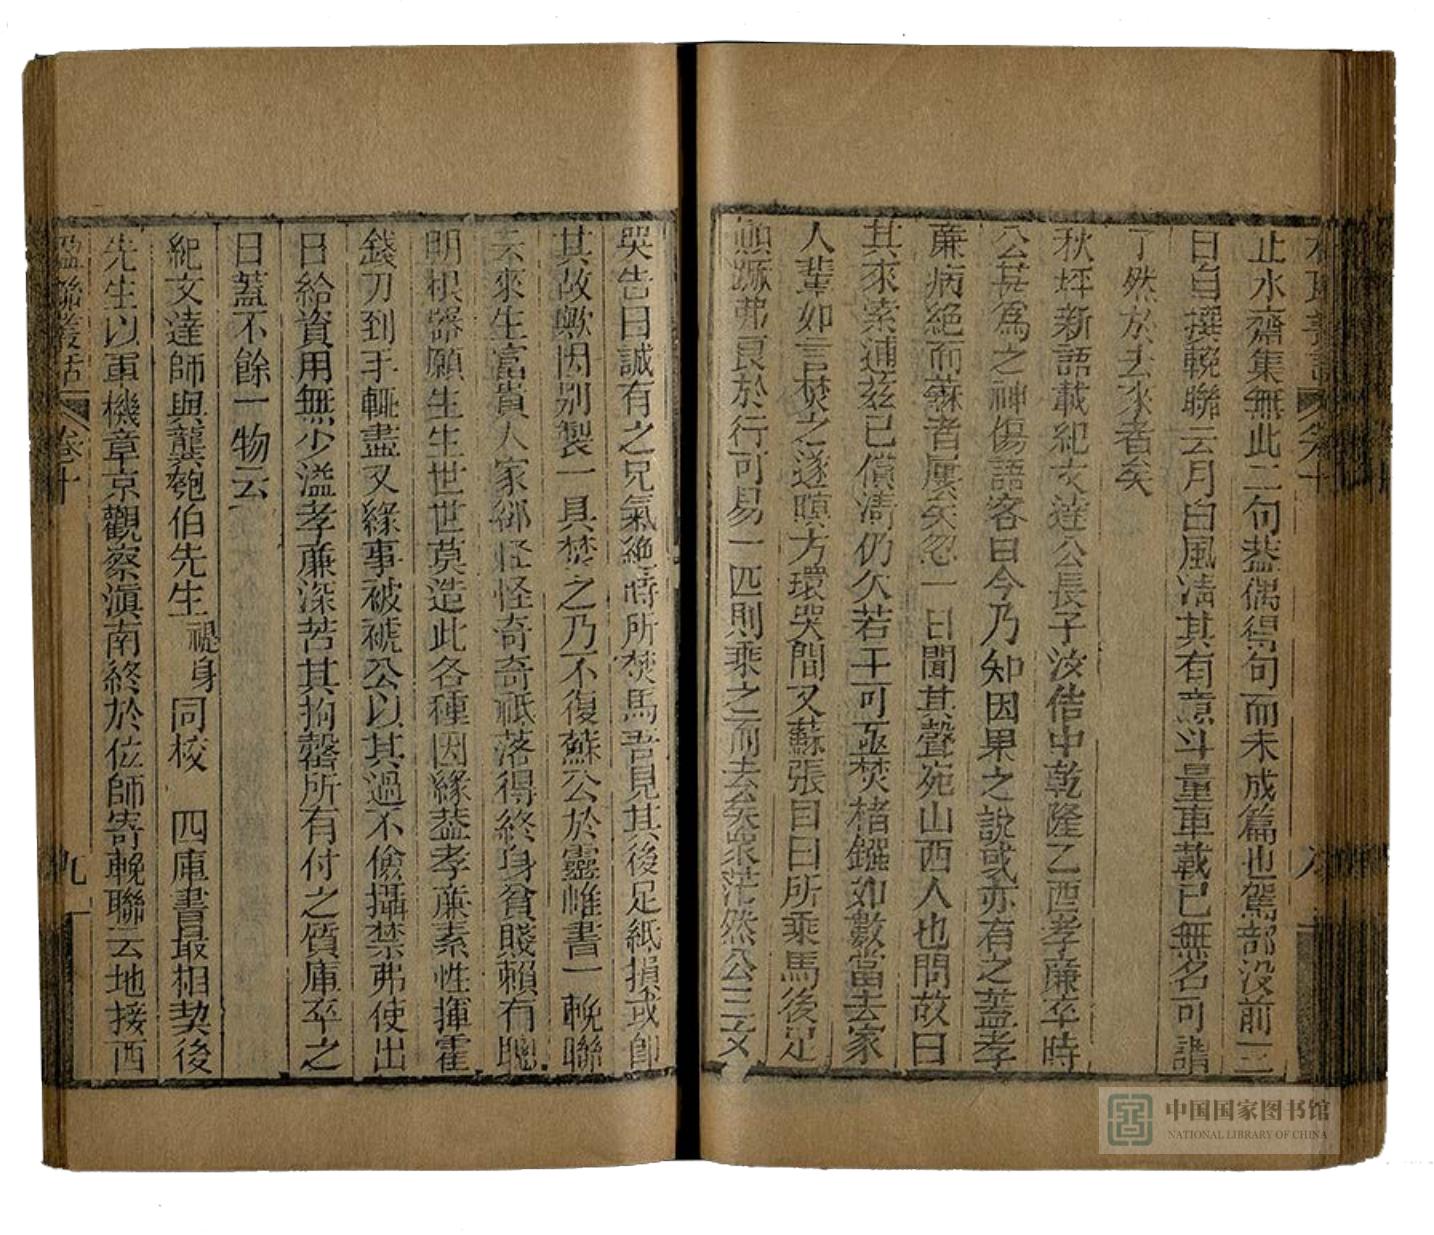 止水齋集無此二句葢偶得句而未成篇也駕部没前三
日自撰輓聯云月白風清其有意斗量車載已無名可謂
了然於去來者矣
秋坪新語載紀文達公長子汝佶中乾隆乙酉孝亷卒時
公甚爲之神傷語客曰今乃知因果之說或亦有之蓋孝
亷病絶而蘇者屢矣忽一日聞其聲宛山西人也問故曰
其來索逋兹已償清仍欠若干可亟焚楮鏹如數當去家
人輩如言焚之遂暝方環哭間又蘇張目曰所乘馬後足
顛蹶弗良於行可易一匹則乘之而去公矣衆茫然公三文
哭告曰誠有之兄氣絶時所焚馬吾見其後足紙損或卽
其故歟因别製一具焚之乃不復蘇公於靈帷書一輓聯
去來生富貴人家郤怪怪奇奇祇落得終身貧賤賴有聰
明根器願生生世世莫造此各種因緣葢孝亷素性揮霍
錢刀到手輒盡又緣事被褫公以其過不儉攝禁弗使出
日給資用無少溢孝亷深苦其拘罄所有付之質庫卒之
日蓋不餘一物云
紀文達師與龔匏伯先生禔身同校 四庫書最相契後
先生以軍機章京觀察滇南終於位師寄輓聯云地接西
楹聯叢話 卷十 九
中国国家图书馆
NATIONAL LIBRARY OF CHINA